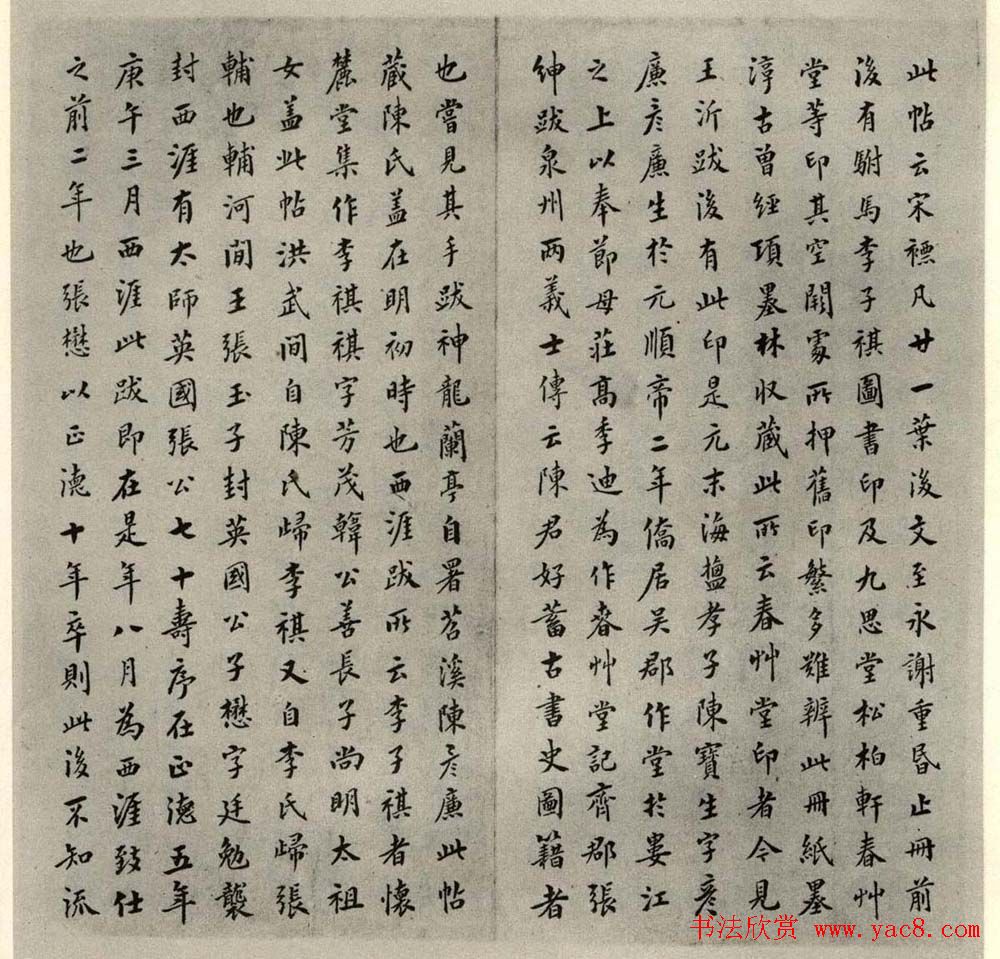 此帖云宋褾凡廿一葉後文至永謝重昏止冊前
後有駙馬李子祺圖書印及九思堂松柏軒春艸
堂等印其空闕處所押舊印繁多難辨此冊紙墨
淳古曾經項墨林收藏此所云春艸堂印者今見
王沂跋後有此印是元末海㯓孝子陳寶生字彥
廉彥廉生於元順帝二年僑居吳郡作堂於婁江
之上以奉節母莊高季迪為作春艸堂記齊郡張
紳跋泉州兩義士傳云陳君好蓄古書史圖籍者
也嘗見其手跋神龍蘭亭自署苕溪陳彥廉此帖
藏陳氏蓋在明初時也西涯跋所云李子祺者懷
麓堂集作李祺祺字芳茂韓公善長子尚明太祖
女蓋此帖洪武間自陳氏歸李祺又自李氏歸張
輔也輔河間王張玉子封英國公子懋字廷勉襲
封西涯有太師英國張公七十壽序在正德五年
庚午三月西涯此跋即在是年八月為西涯致仕
之前二年也張懋以正德十年卒則此後不知流
书法欣赏 www.yac8.com